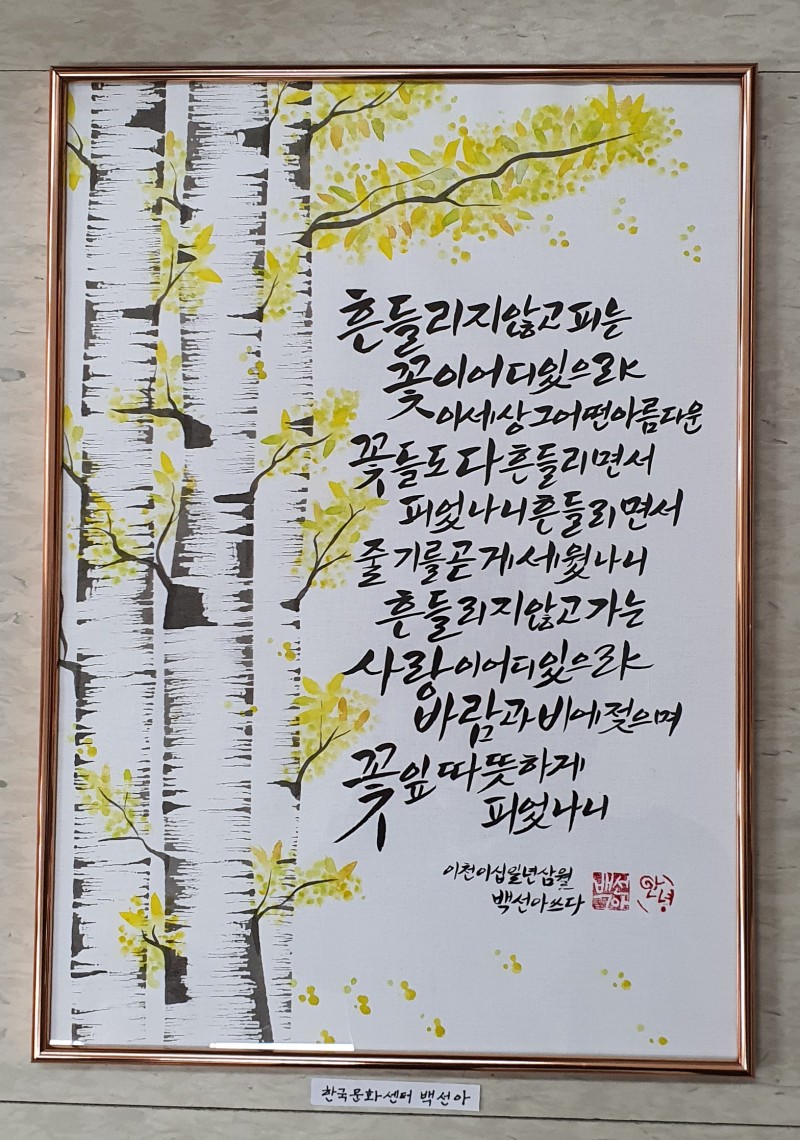 흔들리지않고피는
꽃이어디있으랴
이세상그어떤아름다운
꽃들도다흔들리면서
피었나니흔들리면서
줄기를곧게세웠나니
흔들리지않고가는
사랑이어디있으랴
바람과비에젖으며
꽃잎따뜻하게
피었나니
이천이십일년삼월
백선아쓰다
백선아
안녕
한국문화센터 백선아